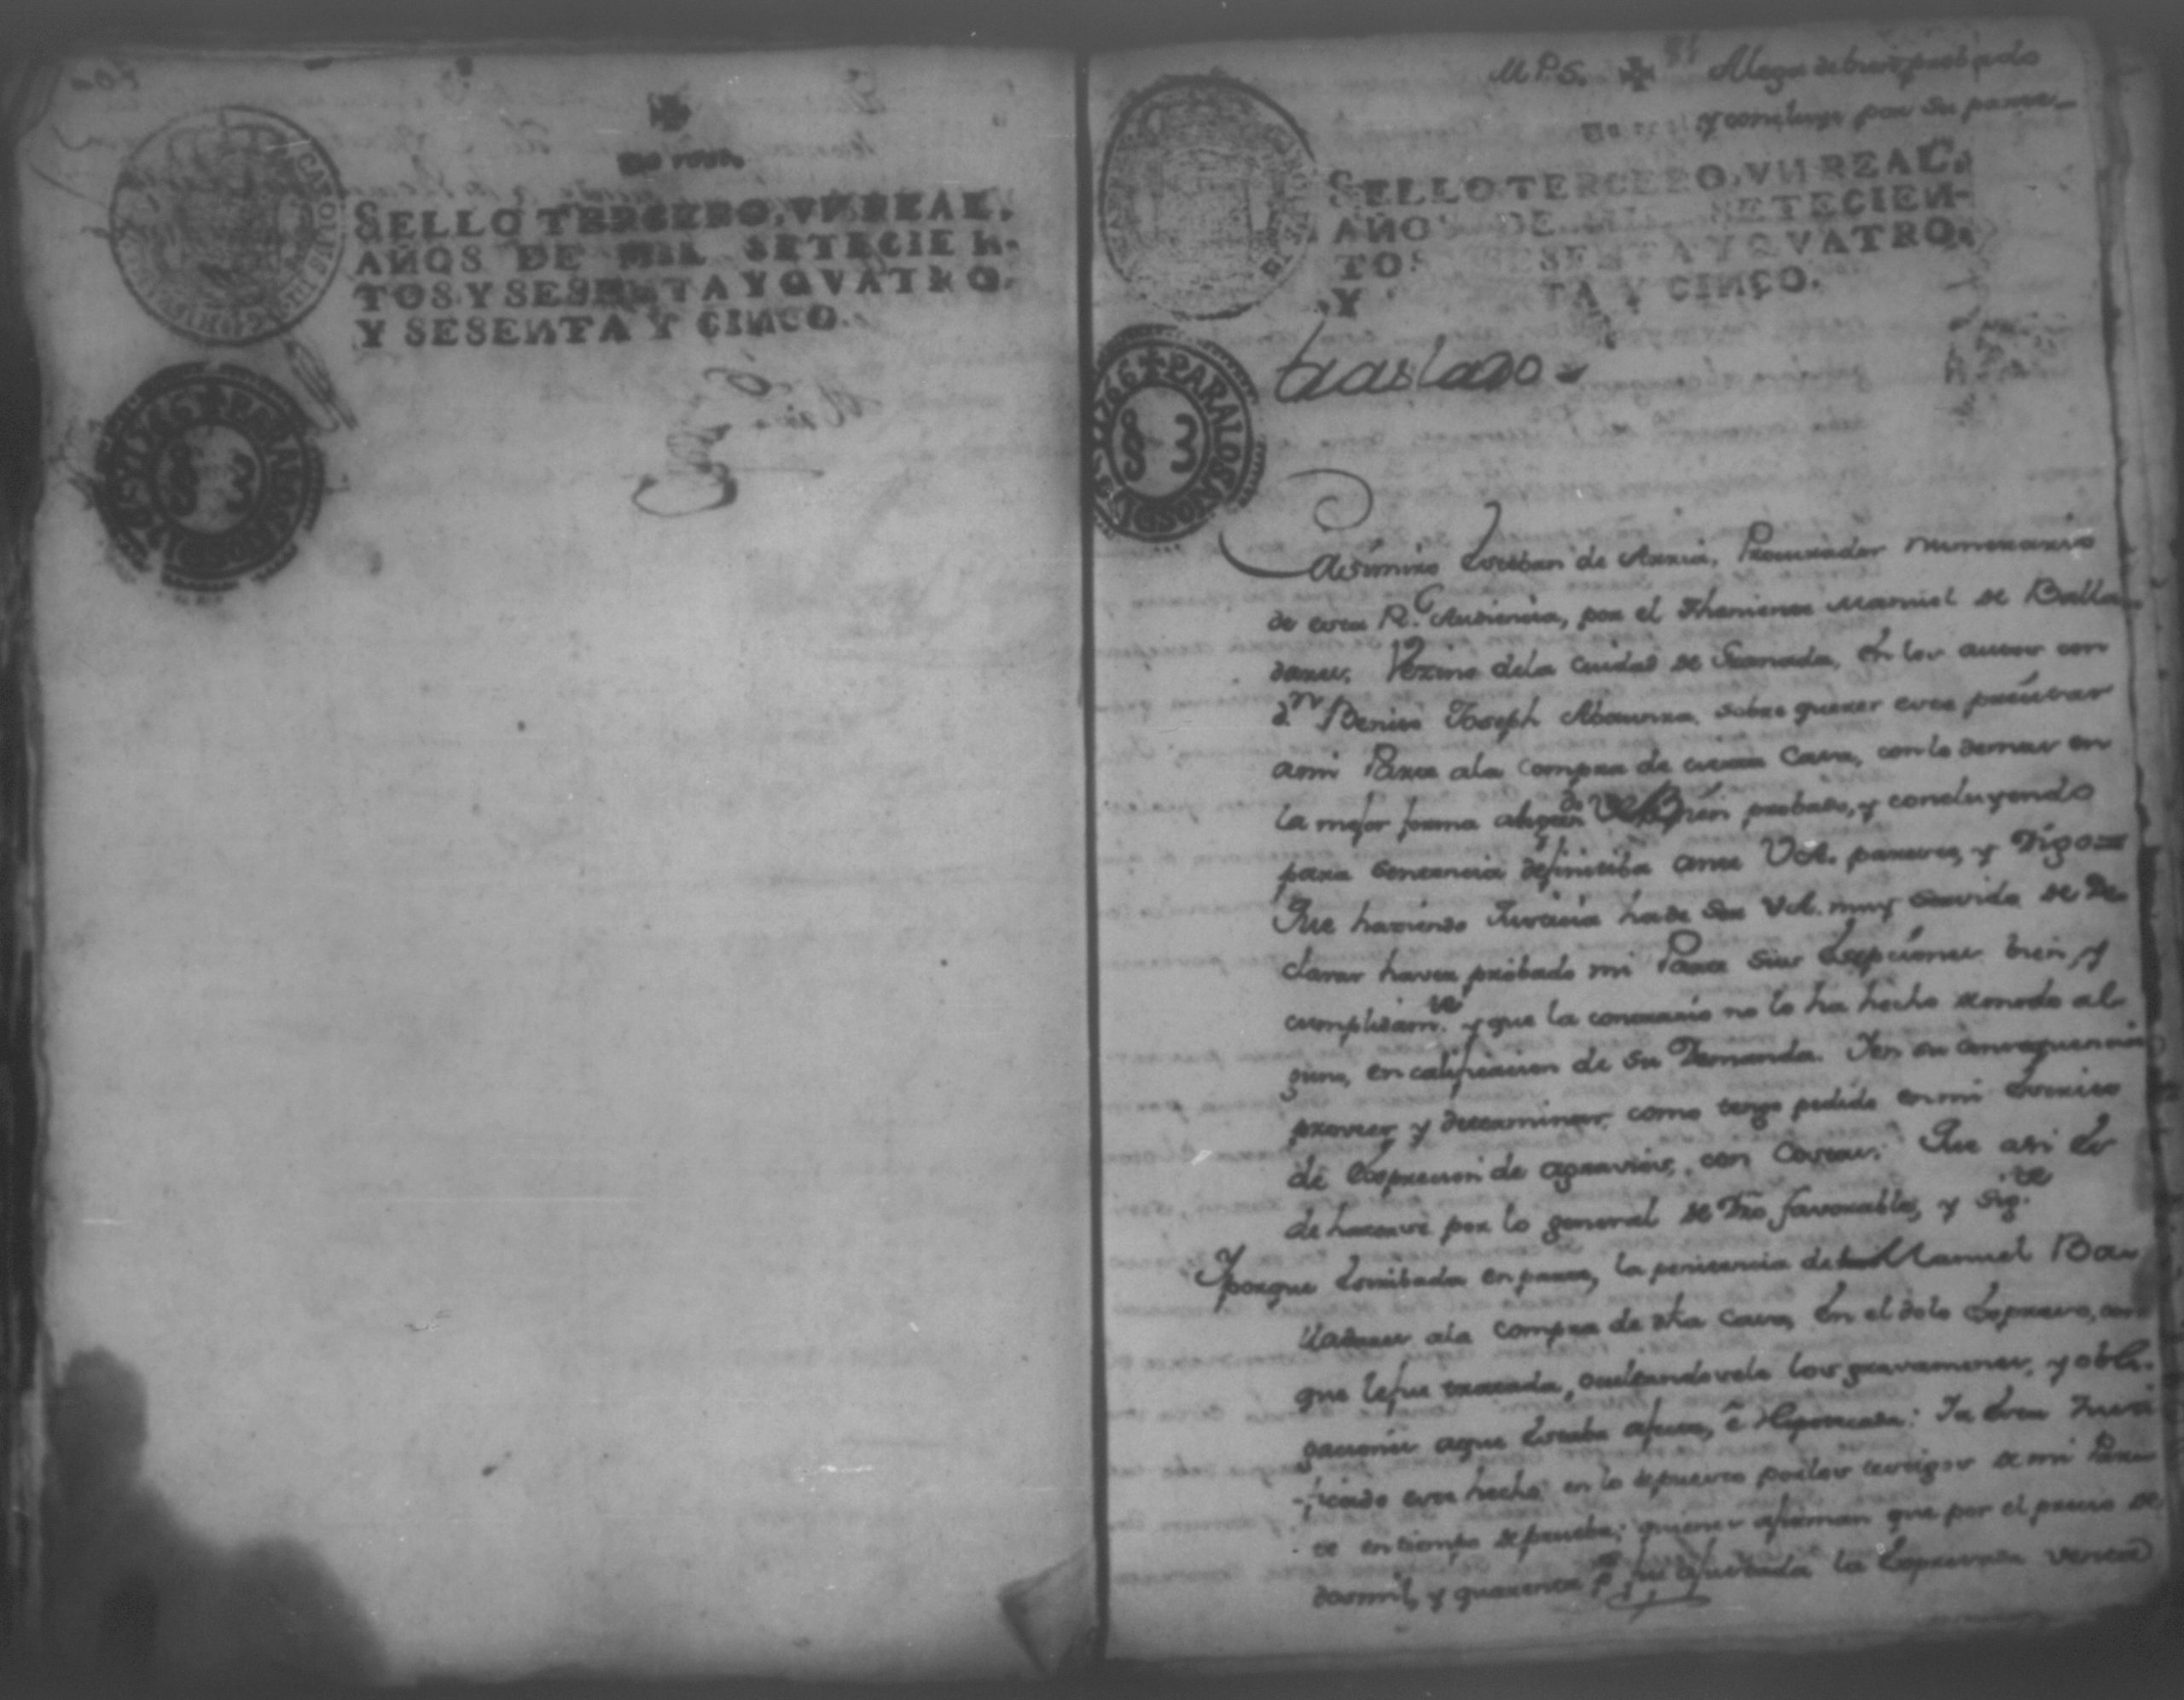 Un real.
SELLO TERCERO, VN REAL,
AÑOS DE MIL SETECIEN-
TOS Y SESENTA Y QVATRO,
Y SESENTA Y CINCO.
3
M.P.S. Alega de bien probado
y concluye por su parte
SELLO TERCERO, VN REAL,
AÑOS DE MIL SETECIEN-
TOS Y SESENTA Y QVATRO,
Y SESENTA Y CINCO.
1766 PARA LOS AÑOS DE
3
traslado
Casimiro Esteban de Arria, Procurador Numerario
de esta Rl. Audiencia, por el Theniente Manuel de Balla
dares, Vezino dela Ciudad de Granada, En los autos con
dn. Benito Joseph Abaunza, sobre querer este precisar
ami Parte ala compra de cierta Casa, con lo demas en
la mejor forma alegdo. de bien probado, y concluyendo
para sentencia definitiba ante V.A. paresco, y Digo=
Que haciendo Justicia hade ser V.A. muy servido de De
clarar haver probado mi Parte sus Esepciones bien, y
cumplidamte. y que la contrario no lo ha hecho demodo al
guno, en calificacion de su Demanda. Ien su consequencia
proveer y determinar como tengo pedido en mi Escrito
de Expresion de agravios, con Costas. Que asi Es
de hacerse por lo general de Dro favorable, y Sigte.
Yporque Estribada en parte, la penitencia de Manuel Ba
lladares ala compra de dha Casa, En el dolo Expreso, con
que lefue tratada, ocultandosele los gravamenes, y obli-
gaciones aque Estaba afecta, é Hipotecada: Ia Esta Justi
ficado este hecho en lo depuesto porlos testigos de mi Par
te en tiempo de prueba; quienes afirman que por el precio de
dosmil, y quarenta ps. fue ajustada la Expresada Venta